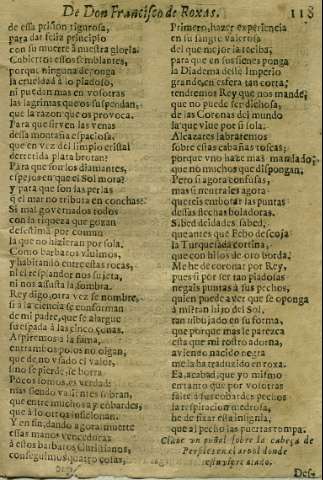 De Don Francisco de Roxas. 118
de essa prision rigurosa,
para dar feliz principio
con su muerte à nuestra gloria.
Cubiertos essos semblantes,
porque ninguna deponga
la crueldad à lo piadoso,
ni puedan mas en vosotras
las lagrimas que os suspendan,
que la razon que os provoca.
Para que sirven las venas
dessa montaña espaciosa,
que en vez del limpio cristal
derretida plata brotan?
Para que son los diamantes,
espejos en que el Sol mora?
y para que son las perlas
q el mar no tributa en conchas?
Si mal governados todos
con la riqueza que gozan
de comun
la que no hizieran por sola.
Como barbaros vivimos,
y habitando entre estas rocas,
ni el resplandor nos sujeta,
ni nos assusta la sombra.
Rey digo, otra vez se nombre,
si à la ciencia se conforman
de mi padre, que se alargue
su espada à las cinco Zonas.
Aspiremos à la fama,
entrambos polos nos oigan,
que de no usado el valor,
sino se pierde, se borra.
Pocos somos, es verdad;
mas siendo valientes sobran,
que entre muchos ay cobardes,
que à los otros inficionan.
Y en fin, dando agora muerte
essas manos vencedoras
à estos barbaros Christianos,
conseguimos quatro cosas,
Primero, hazer experiencia
en su sangre valerosa
del que mejor la reciba;
para que en sus sienes ponga
la Diadema deste Imperio
grande, en esfera tan corta;
tendremos Rey que nos mande,
que no puede ser dichosa,
de las Coronas del mundo
la que vive por si sola.
Alcazares labraremos
sobre estas cabañas toscas;
porque vno haze mas mandado,
que no muchos que dispongan.
Pero si agora confusas,
mas ò neutrales agora
quereis embotar las puntas
dessas flechas boladoras.
Sabed deidades sabed,
que antes que Febo descoja
la Turquesada cortina,
que con hilos de oro borda.
Me he de coronar por Rey,
pues si por ser tan piadosas
negais puntas à sus pechos,
quien puede aver que se oponga
à mi tan hijo del Sol,
tan dibujado en su forma,
que porque mas le parezca
esta que mi rostro adorna,
aviendo nacido negra
me la ha traduzido en roxa.
Ea, acabad, que yo mismo
en tanto que por vosotras
falte à sus cobardes pechos
la respiracion medrosa,
he de fixar esta insignia,
que al pecho las puertas rompa.
Clava un puñal sobre la cabeça de
Perseles en el arbol donde
està atado.
Des-